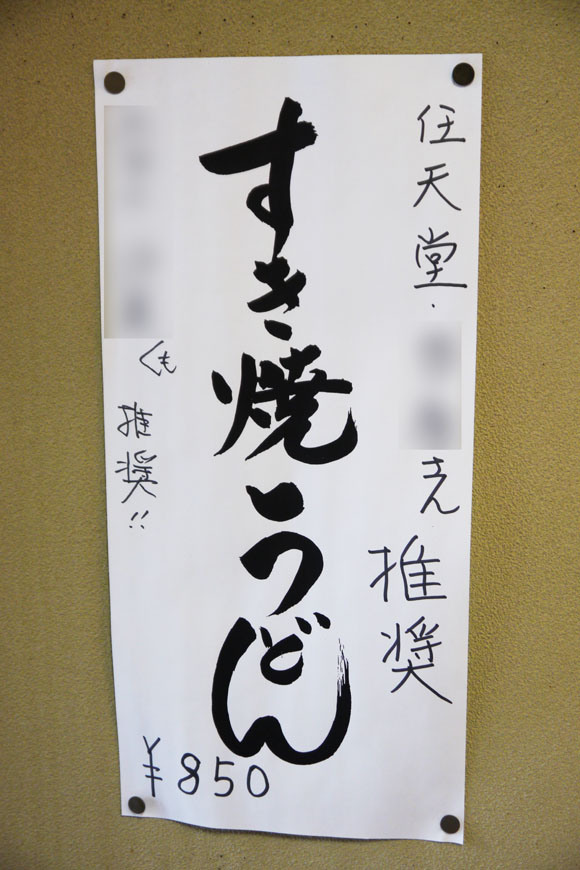 任天堂・
さん
推奨
すき焼うどん
くも
推奨!!
¥850